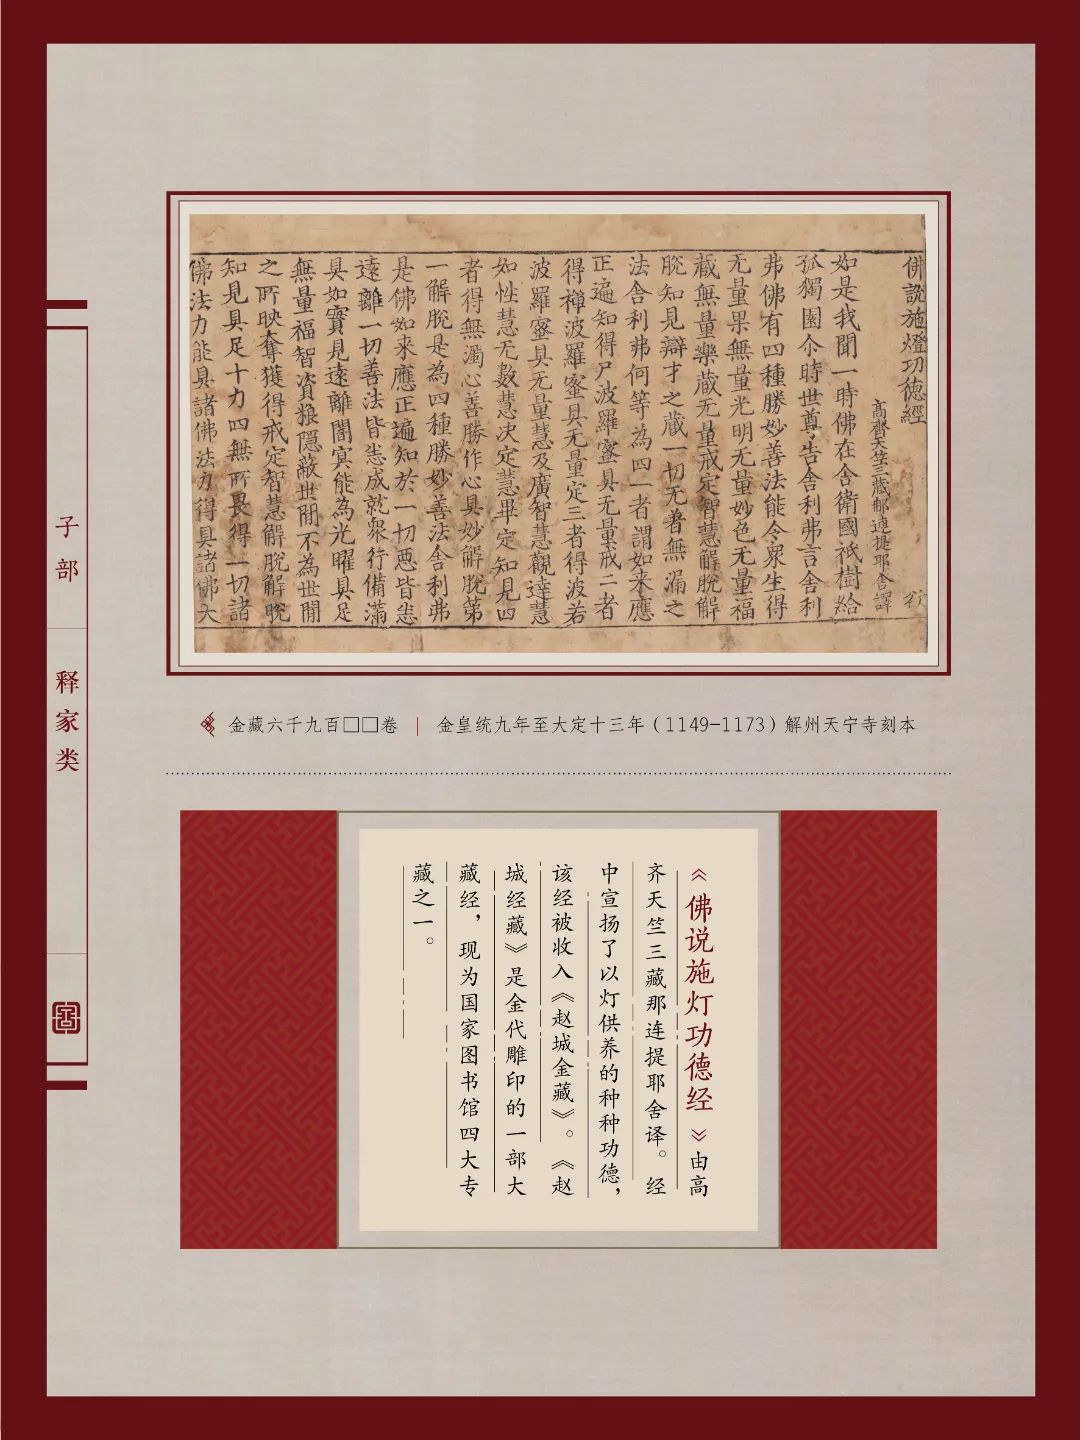 子部
释家类
佛説施燈功德經
高齊天竺三藏那連提耶舍譯
如是我聞一時佛在舍衛國祇樹給
孤獨園尒時世尊告舍利弗言舍利
弗佛有四種勝妙善法能令衆生得
无量果無量光明无量妙色无量福
藏無量樂藏无量戒定智慧解脫解
脫知見辯才之藏一切无著無漏之
法舍利弗何等為四一者謂如来應
正遍知得尸波羅蜜具无量戒二者
得禪波羅蜜具无量定三者得波若
波羅蜜具无量慧及廣智慧觀達慧
如性慧无數慧决定慧畢定知見四
者得無濁心善勝作心具妙解脫第
一解脫是為四種勝妙善法舍利弗
是佛如来應正遍知於一切惡皆悉
遠離一切善法皆悉成就衆行備滿
具如實見遠離闇冥能為光曜具足
無量福智資粮隱蔽世間不為世間
之所映奪獲得戒定智慧解脫解脫
知見具足十力四無所畏得一切諸
佛法力能具諸佛法力得具諸佛大
金藏六千九百□□卷 | 金皇统九年至大定十三年（1149-1173）解州天宁寺刻本
《佛说施灯功德经》由高
齐天竺三藏那连提耶舍译。经
中宣扬了以灯供养的种种功德，
该经被收入《赵城金藏》。《赵
城经藏》是金代雕印的一部大
藏经，现为国家图书馆四大专
藏之一。